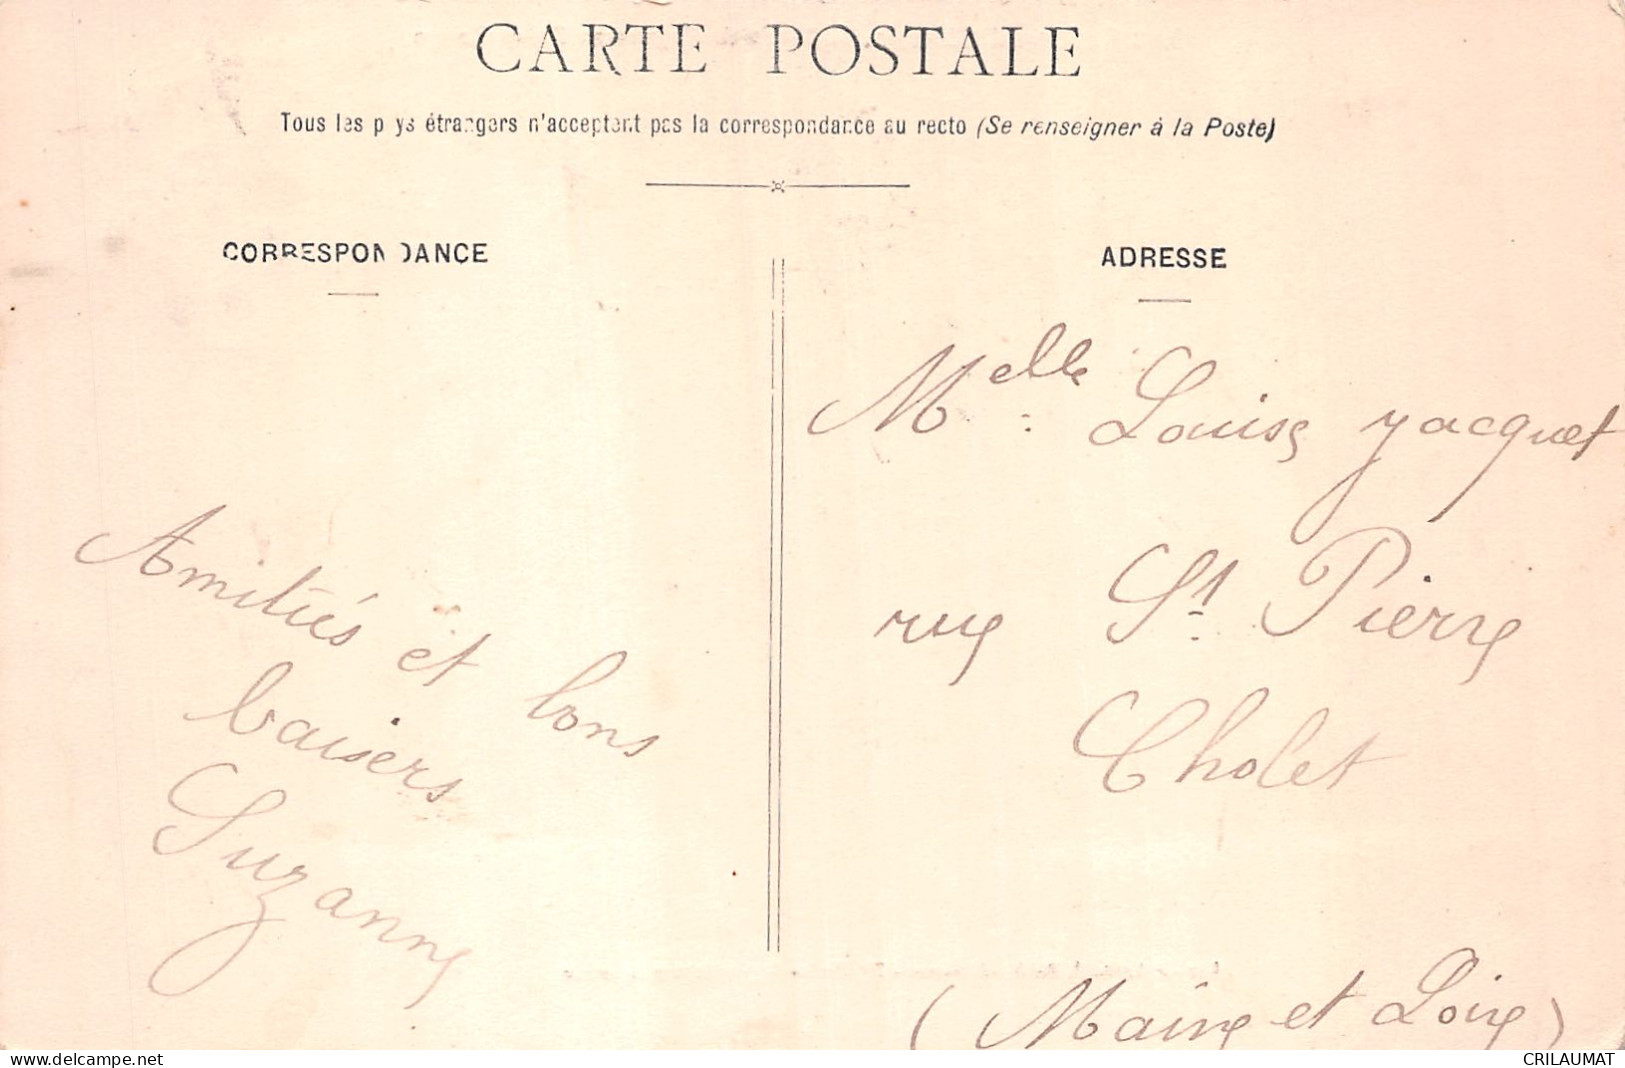 CARTE POSTALE
Tous les pays étrangers n'acceptent pas la correspondance au recto (Se renseigner à la Poste)
CORRESPONDANCE
Amitiés et bons
baisers
Suzanne
ADRESSE
Melle Louise Jacquet
rue St Pierre
Cholet
(Maine et Loire)
www.delcampe.net
CRILAUMAT